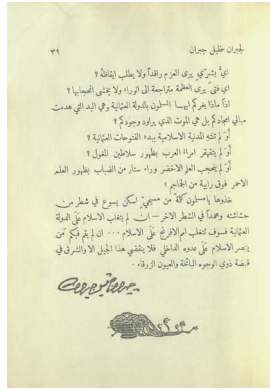 لجبران خليل جبران ٣٩
أيُّ بشريّ يرى العزم راقداً ولا يطلب ايقاظه ؟
اي فتىً يرى العظمة متراجعة الى الوراء ولا يخشى انحجابها ؟
اذاً ماذا يغركم ايها المسلمون بالدولة العثمانية وهي اليد التي هدمت
مباني امجادكم بل هي الموت الذي يراود وجودكم ؟
أوَ لم تنته المدنية الاسلامية ببدء الفتوحات العثمانية ؟
أوَ لم يتقهقر امراء العرب بظهور سلاطين المغول ؟
أوَ لم ينحجب العلم الاخضر وراء ستار من الضباب بظهور العلم
الاحمر فوق رابية من الجماجم ؟
خذوها يا مسلمون كلمةً من مسيحيّ اسكن يسوع في شطر من
حشاشته ومحمداً في الشطر الآخر — ان لم يتغلب الاسلام على الدولة
العثمانية فسوف تتغلب امم الافرنج على الاسلام ... ان لم يقم فيكم من
ينصر الاسلام على عدوه الداخلي فلا ينقضي هذا الجيل الا والشرق في
قبضة ذوي الوجوه البائخة والعيون الزرقاء .